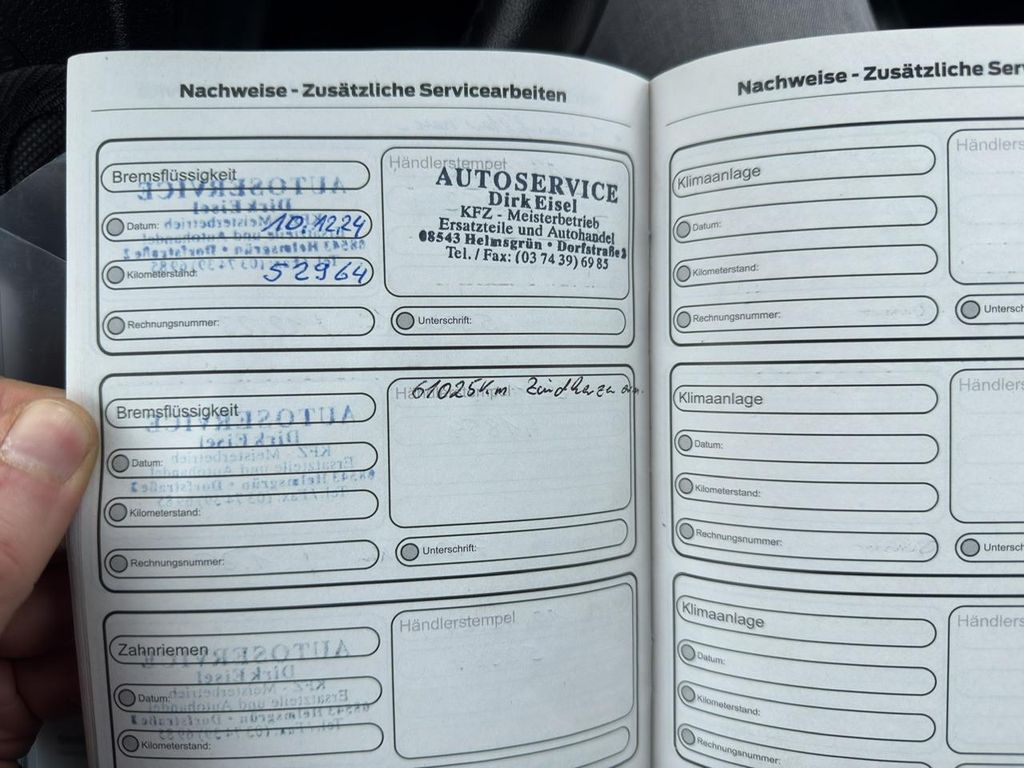 Nachweise - Zusätzliche Servicearbeiten
Bremsflüssigkeit
Datum: 10.12.24
Kilometerstand: 52964
Rechnungsnummer:
Händlerstempel
AUTOSERVICE
Dirk Eisel
KFZ - Meisterbetrieb
Ersatzteile und Autohandel
08543 Helmsgrün • Dorfstraße 2
Tel. / Fax: (03 74 39) 69 85
Unterschrift:
Bremsflüssigkeit
Datum:
Kilometerstand:
Rechnungsnummer:
Händlerstempel
61025km
Unterschrift:
Zahnriemen
Datum:
Kilometerstand:
Händlerstempel
Nachweise - Zusätzliche Ser
Klimaanlage
Datum:
Kilometerstand:
Rechnungsnummer:
Händlers
Untersch
Klimaanlage
Datum:
Kilometerstand:
Rechnungsnummer:
Händlers
Untersch
Klimaanlage
Datum:
Kilometerstand:
Rechnungsnummer:
Händlers